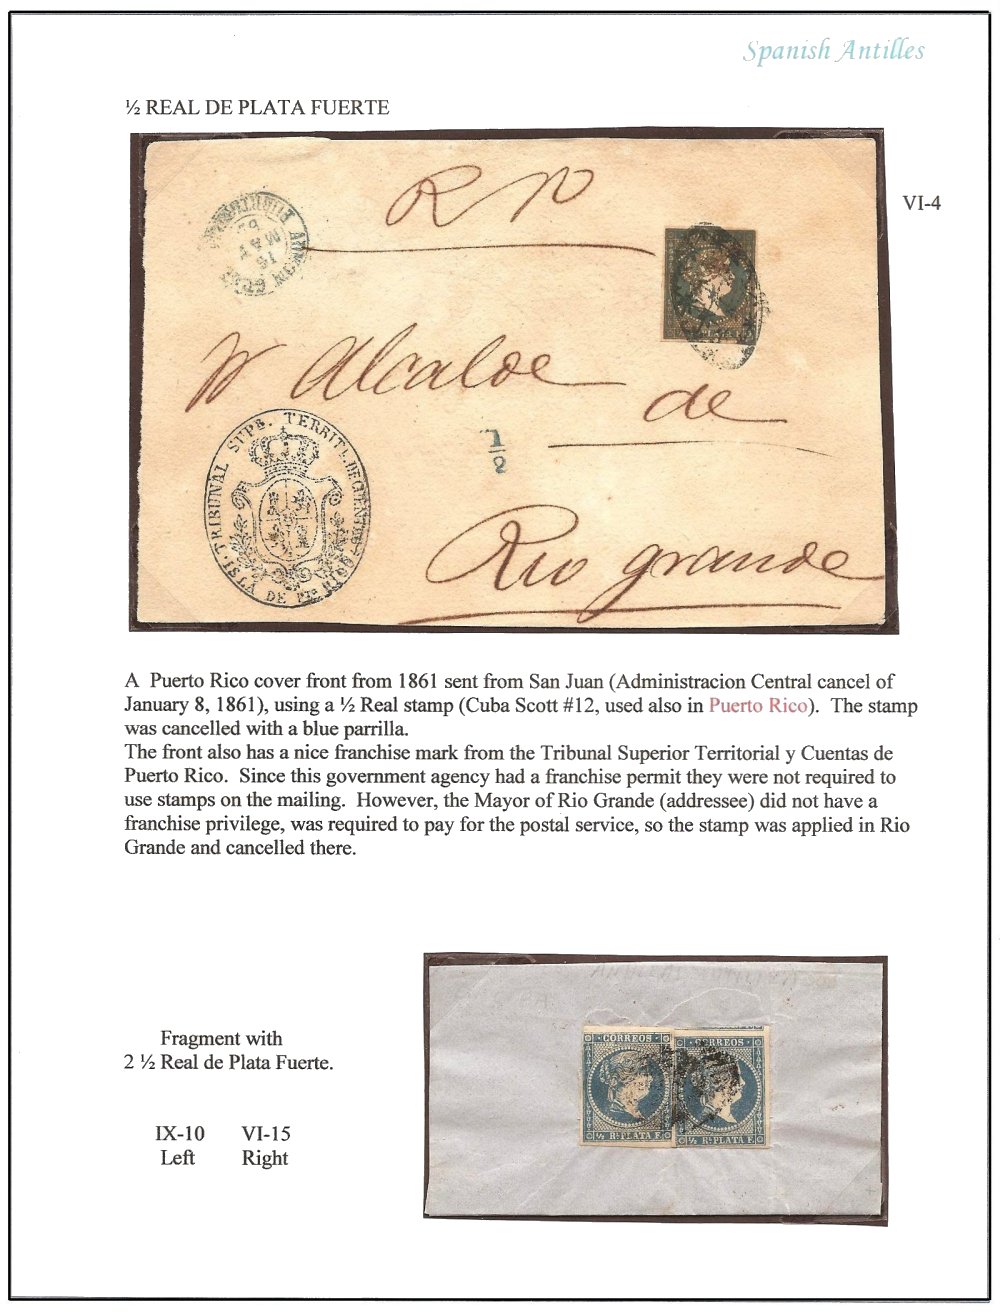 Spanish Antilles
½ REAL DE PLATA FUERTE
VI-4
MAY
Alcalde
de
1/2
TRIBUNAL SUPR. TERRITL. DE CUENTAS
ISLA DE PTO. RICO
Rio grande
PLATA F.
A Puerto Rico cover front from 1861 sent from San Juan (Administracion Central cancel of
January 8, 1861), using a ½ Real stamp (Cuba Scott #12, used also in Puerto Rico). The stamp
was cancelled with a blue parrilla.
The front also has a nice franchise mark from the Tribunal Superior Territorial y Cuentas de
Puerto Rico. Since this government agency had a franchise permit they were not required to
use stamps on the mailing. However, the Mayor of Rio Grande (addressee) did not have a
franchise privilege, was required to pay for the postal service, so the stamp was applied in Rio
Grande and cancelled there.
Fragment with
2 ½ Real de Plata Fuerte.
IX-10 VI-15
Left Right
CORREOS CORREOS
½ RL. PLATA F. ½ RL. PLATA F.